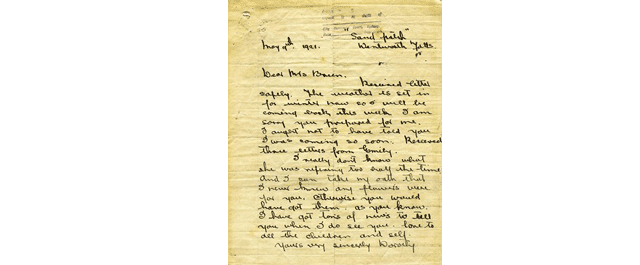 "Sand patch"
May 9th, 1921. Wentworth Falls.
Dear Mrs Brown,
Received letter
safely. The weather is set in
for winter now so I will be
coming back this week. I am
sorry you prepared for me.
I aught not to have told you
I was coming so soon. Received
those letters from Emily.
I really don't know what
she was refering too half the time
and I can take my oath that
I never knew any flowers were
for you, otherwise you would
have got them. as you know.
I have got tons of news to tell
you when I do see you. love to
all the children and self.
Yours very sincerely Dorothy